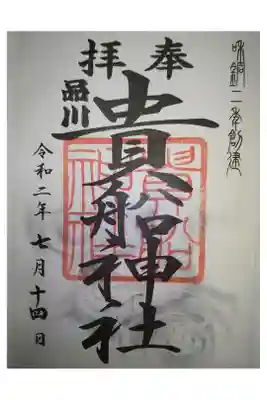 和銅二年創建
奉拝
品川
貴船神社
令和二年七月十四日